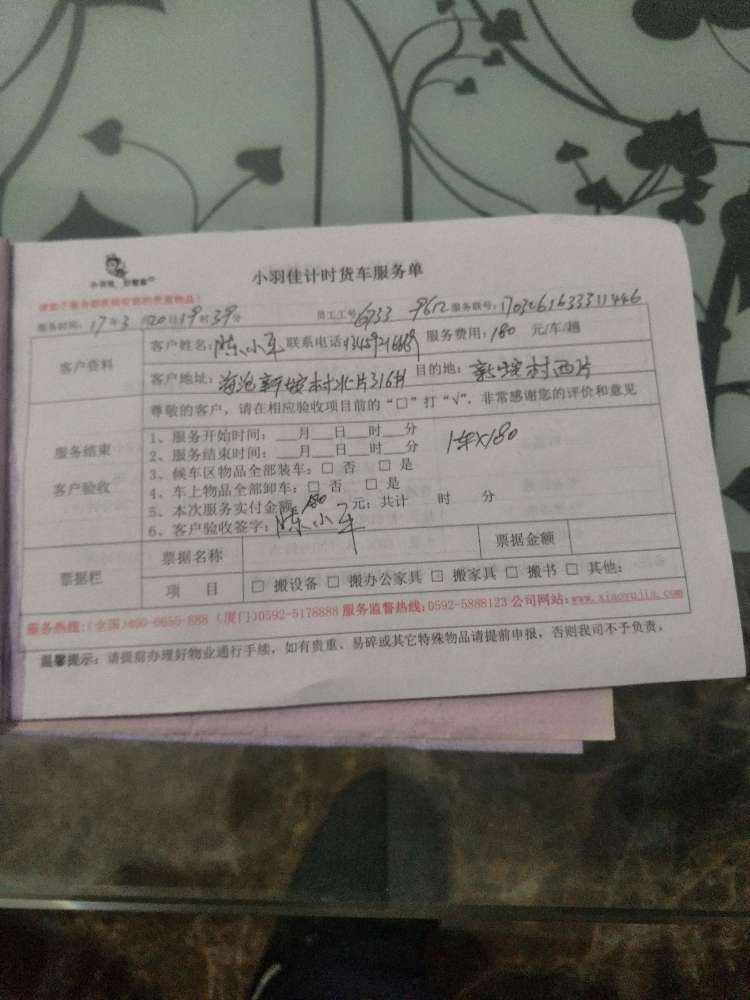 小羽佳计时货车服务单
服务时间：17年3月20日19时39分 员工工号 6933 9612 服务联号：
客户资料
客户姓名：陈小军 联系电话 服务费用：180 元/车/趟
客户地址：海沧新垵村北片316# 目的地：新垵村西片
尊敬的客户，请在相应验收项目前的“□”打“√”，非常感谢您的评价和意见
服务结束
客户验收
1、服务开始时间：__月__日__时__分
2、服务结束时间：__月__日__时__分
1车×180
3、候车区物品全部装车：□ 否 □ 是
4、车上物品全部卸车：□ 否 □ 是
5、本次服务实付金额 180 元：共计 时 分
6、客户验收签字：陈小军
票据栏
票据名称 票据金额
项 目 □ 搬设备 □ 搬办公家具 □ 搬家具 □ 搬书 □ 其他：
服务热线：(全国)400-6655-888 (厦门)0592-5178888 服务监督热线：0592-5888123 公司网站：www.xiaoyujia.com
温馨提示：请提前办理好物业通行手续，如有贵重、易碎或其它特殊物品请提前申报，否则我司不予负责。